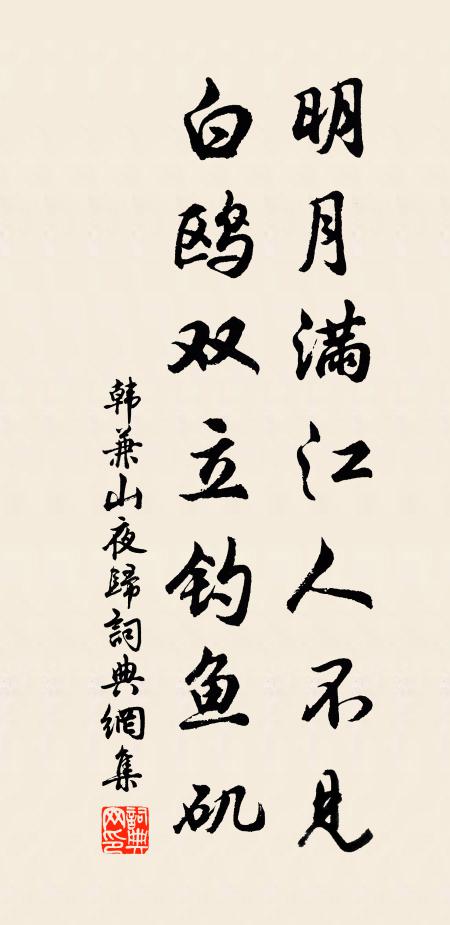 明月满江人不见
白鸥双立钓鱼矶
韩兼山夜歸詞典網集
詞典网印